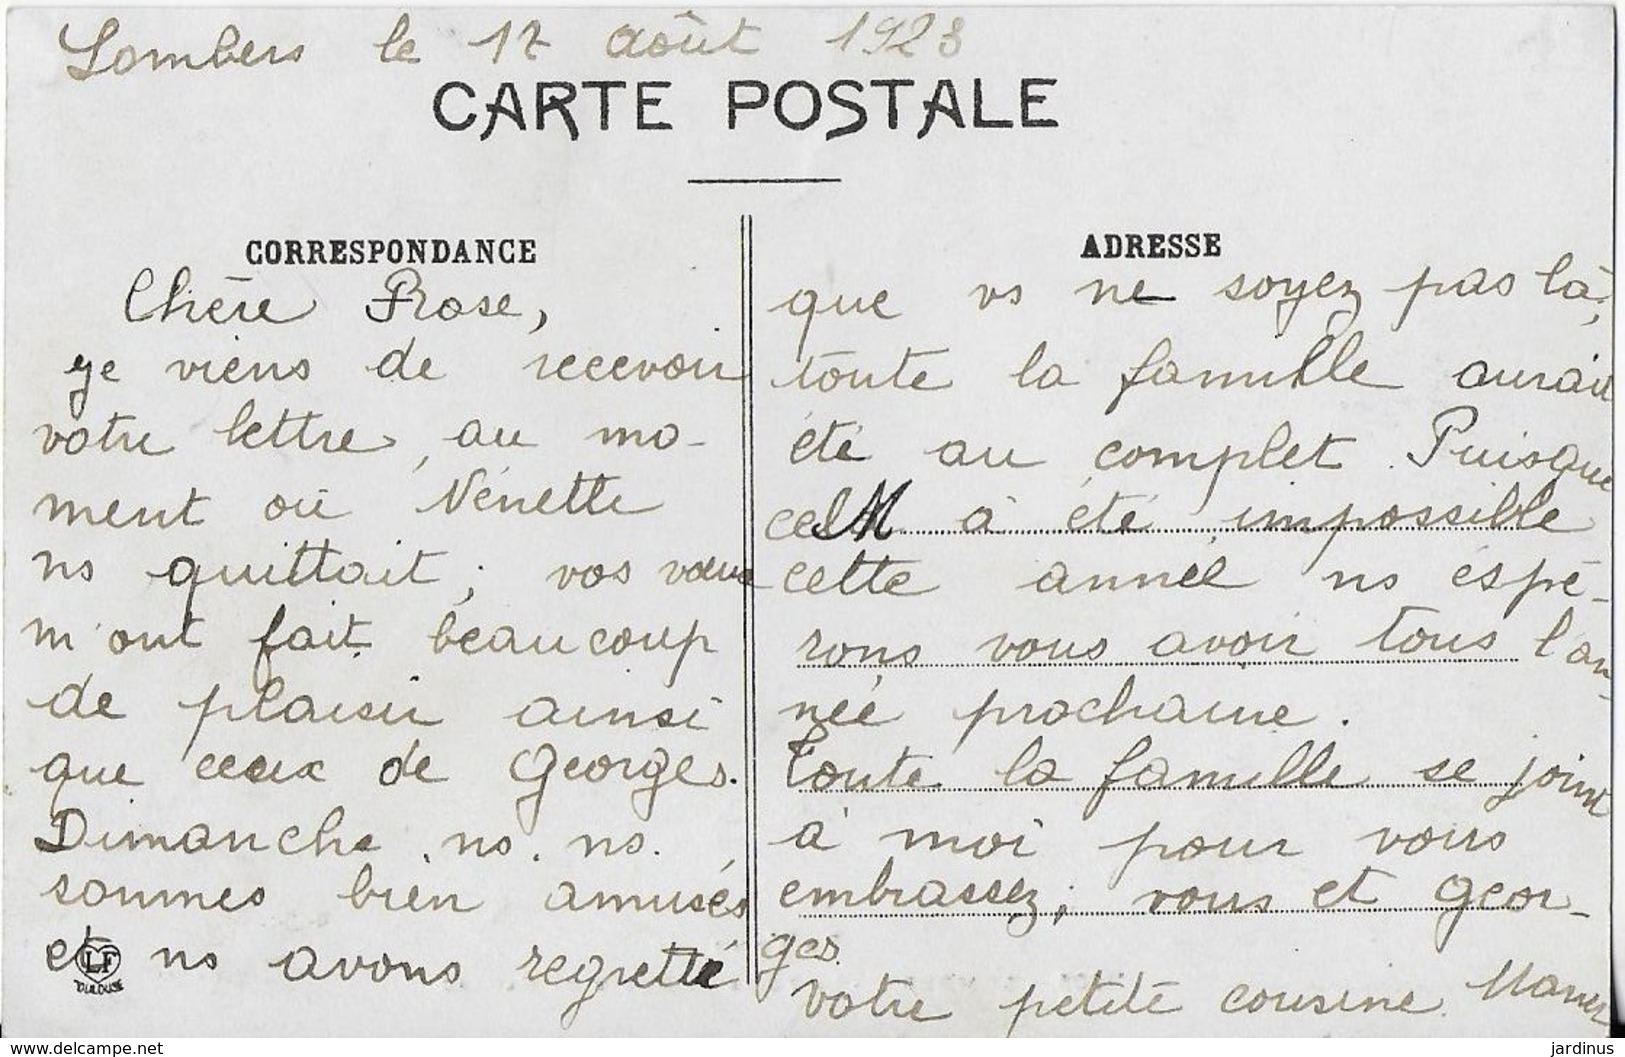 Lombers le 17 août 1923
CARTE POSTALE
CORRESPONDANCE
Chère Rose,
je viens de recevoir
votre lettre, au mo-
ment où Nénette
ns quittait; vos vœux
m'ont fait beaucoup
de plaisir ainsi
que ceux de Georges.
Dimanche ns. ns.
sommes bien amusés
et ns avons regretté
LF
TOULOUSE
ADRESSE
que vs ne soyez pas là,
toute la famille aurait
été au complet. Puisque
cela à été impossible
cette année ns espé-
rons vous avoir tous l'an-
née prochaine.
Toute la famille se joint
à moi pour vous
embrassez; vous et Geor-
ges.
votre petite cousine
delcampe.net
jardinus